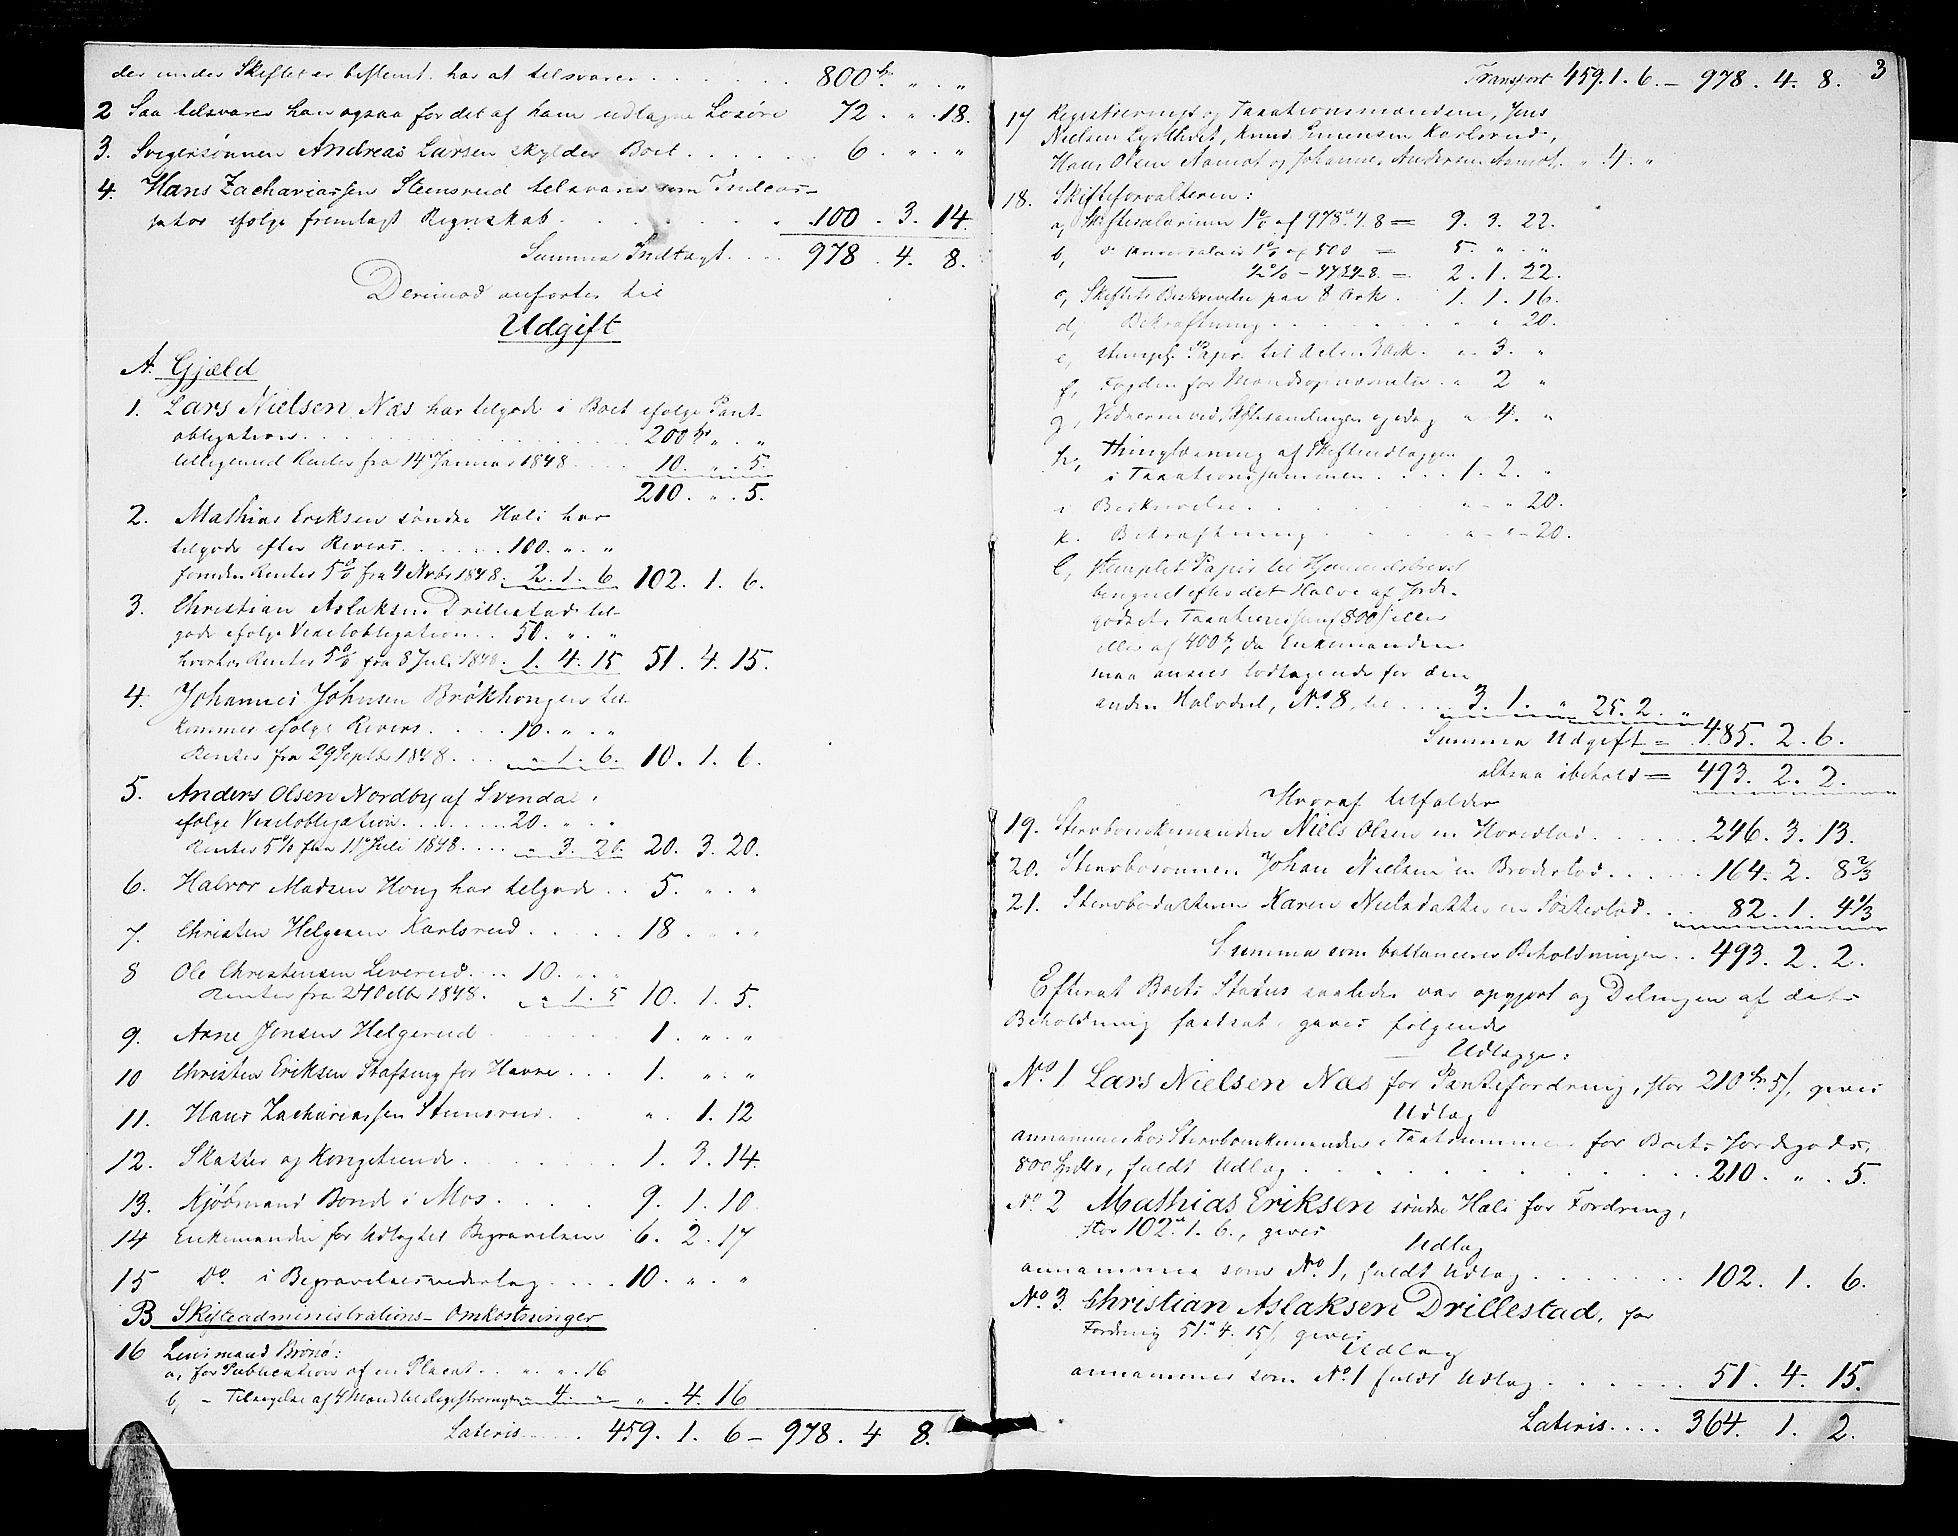 der under Skiftet er bestemt har at tilsvarer . . . . . 800 " . "
2 Saa tilsvarer han ogsaa for det af ham udlagne Losöre 72 . " . 18.
3. Svigersønnen Andreas Larsen skylder Boet . . . . . . 6 . " . "
4. Hans Zachariassen Steensrud tilsvarer som Incas-
sator ifølge fremlagt Regnskab . . . . . . 100 . 3 . 14.
Summa Indtægt . . . . 978 . 4 . 8.
Derimod anføres til
Udgift
A. Gjæld
1. Lars Nielsen Næs har tilgode i Boet ifølge Pant-
obligation . . . . . . . . . . 200 " . "
tilligemed Renter fra 14 Januar 1848 . . . . 10 . " . 5.
210 . " . 5.
2. Mathias Eriksen søndre Hali har
tilgode efter Revers . . . . . . 100. " . "
foruden Renter 5% fra 4 Novbr 1848. 2. 1. 6. 102. 1. 6.
3. Christian Aslaksen Drillestad til-
gode ifølge Vexelobligation . . 50. " . "
hvortil Renter 5% fra 8 Juli 1848. 1. 4. 15 51. 4. 15.
4. Johannes Johnsen Brökhougen til-
kommer ifølge Revers . . . . . 10. " . "
Renter fra 29 Septbr 1848 . . . " 1. 6. 10. 1. 6.
5. Anders Olsen Nordby af Svendal
ifølge Vexelobligation . . . . . . 20. " . "
Renter 5% fra 11 Juli 1848 . . . . " 3. 20. 20. 3. 20.
6. Halvor Madsen Houg har tilgode . . 5. " . "
7. Christen Helgesen Karlsrud . . . . . 18 . " . "
8 Ole Christensen Leverud . . . . 10. " . "
Renter fra 24 Octbr 1848. " 1. 5 10. 1. 5.
9. Arne Jensen Helgerud 1. " . "
10 Christen Eriksen Stafseng for Havre . . . 1. " . "
11. Hans Zachariassen Steensrud . . " . 1. 12
12. Skatter og Kongetiende . . . . . . 1. 3. 14.
13. Kjøbmand Bonde i Mos . . . . . 9. 1. 10.
14 Enkemanden for Udlagte Begravelsen 6. 2. 17
15 Do i Begravelsesvederlag . . . . 10. " . "
B Skifteadministrations-Omkostninger
16 Lensmand Brönö:
a, for Publication af en Placat . . " . " . 16
b, - Tilsigelse af 4 Mænd til Registrering " 4. " " . 4. 16
Lateris . . . . . 459. 1. 6 - 978. 4 8.
3
Transport 459. 1. 6. - 978. 4. 8.
17 Registrerings og Taxationsmændene, Jens
Nielsen Lysthvet, Knud Simensen Karlsrud,
Hans Olsen Aamot og Johannes Andersen Aamot . " 4. "
18. Skifteforvalteren:
a, Skiftesalarium 1% af 978. 4. 8 = 9. 3. 22.
b, 1% af 500 = 5. " . "
½% - 478. 4. 8. = 2. 1. 22.
c, Skiftets Beskrivelse paa 8 Ark . 1. 1. 16.
d, Bekræftning . . . . . " " 20.
e, stempl. Papr. til Acten 3 Ark . " 3. "
f, Fogden for Mandsopnævnelse . " 2 "
g, Vidnerne ved Skiftesamlingen og idag " 4. "
h, Thinglæsning af Skifteudlægget
i Taxationssummen . . . . 1. 2. "
i Beskrivelse . . . . . . " " 20.
k. Bekræftning . . . . . " " 20.
l, stemplet Papir til Hjemmelsbrevet
beregnet efter det Halve af Jorde-
godsets Taxationssum 800 eller
eller af 400, da Enkemanden
maa ansees lodtagende for den
anden Halvdel, No 8, til . . . . 3. 1. " 25. 2. "
Summa Udgift = 485. 2. 6.
altsaa ibehold = 493. 2. 2.
Hvoraf tilfalder
19. Stervboenkemanden Niels Olsen en Hovedlod . . . . . . 246. 3. 13.
20. Stervbosönnen Johan Nielsen en Broderlod . . . . . . 164. 2. 8⅔
21. Stervbodatteren Karen Nielsdatter en Søsterlod . . . 82. 1. 4⅓
Summa som ballancerer Beholdningen . . 493. 2. 2.
Efterat Boets Status saaledes var opgjort og Delingen af dets
Beholdning fastsat, gaves følgende
Udlægge:
No. 1 Lars Nielsen Næs for Pantefordring, stor 210 5/, gives
Udlæg
annammes hos Stervboenkemanden i Taxtsummen for Boets Jordegods,
800 Spdlr, fuldt Udlæg . . . . . . . . . 210. " . 5.
No. 2 Mathias Eriksen søndre Hali for Fordring,
stor 102. 1. 6., gives
Udlæg
annammes som No. 1, fuldt Udlæg . . . . . . . 102. 1. 6.
No. 3. Christian Aslaksen Drillestad, for
Fordring 51. 4. 15/, gives
Udlæg
annammes som No. 1 fuldt Udlæg . . . . . . 51. 4. 15.
Lateris . . . . 364. 1. 2.